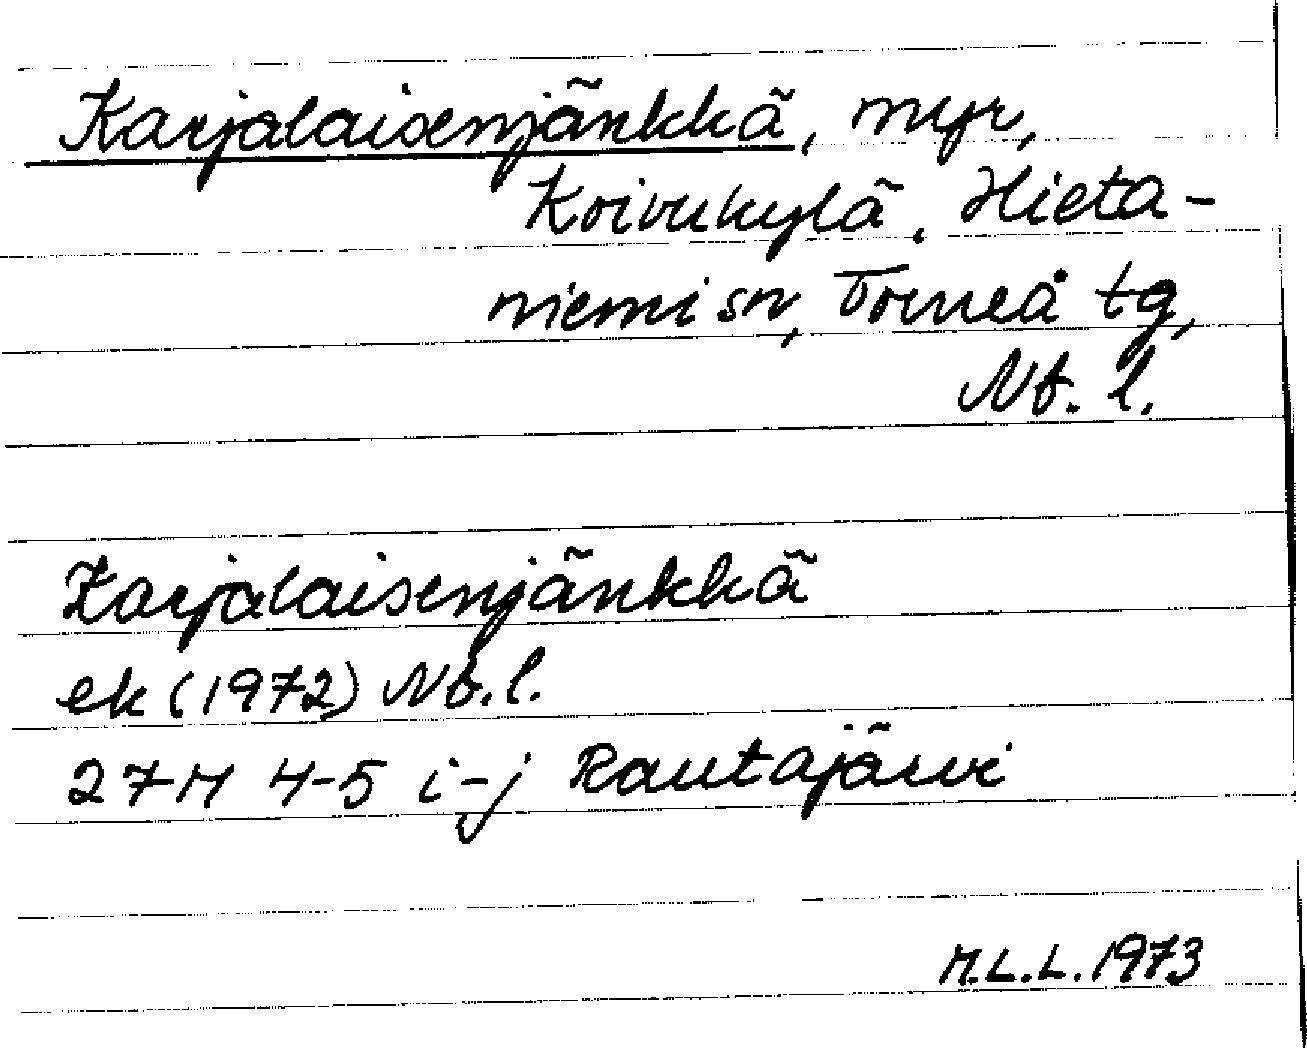 Karjalaisenjänkkä, myr,
Koivukylä, Hieta-
niemi sn, Torneå tg,
Nb. l.
Karjalaisenjänkkä
ek (1972) Nb. l.
27M 4-5 i-j Rautajärvi
M.L.L. 1973